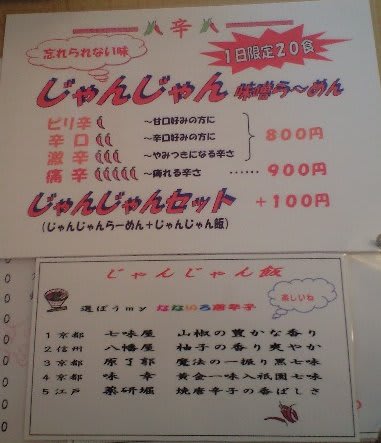 辛
忘れられない味
1日限定20食
じゃんじゃん 味噌ら〜めん
ピリ辛 〜甘口好みの方に
辛口 〜辛口好みの方に
激辛 〜やみつきになる辛さ
800円
痛辛 〜痺れる辛さ ……900円
じゃんじゃんセット +100円
(じゃんじゃんらーめん+じゃんじゃん飯)
じゃんじゃん飯
楽しいね
選ぼうmy なないろ唐辛子
1京都 七味屋 山椒の豊かな香り
2信州 八幡屋 柚子の香り爽やか
3京都 原了郭 魔法の一振り黒七味
4京都 味幸 黄金一味入祇園七味
5江戸 薬研堀 焼唐辛子の香ばしさ